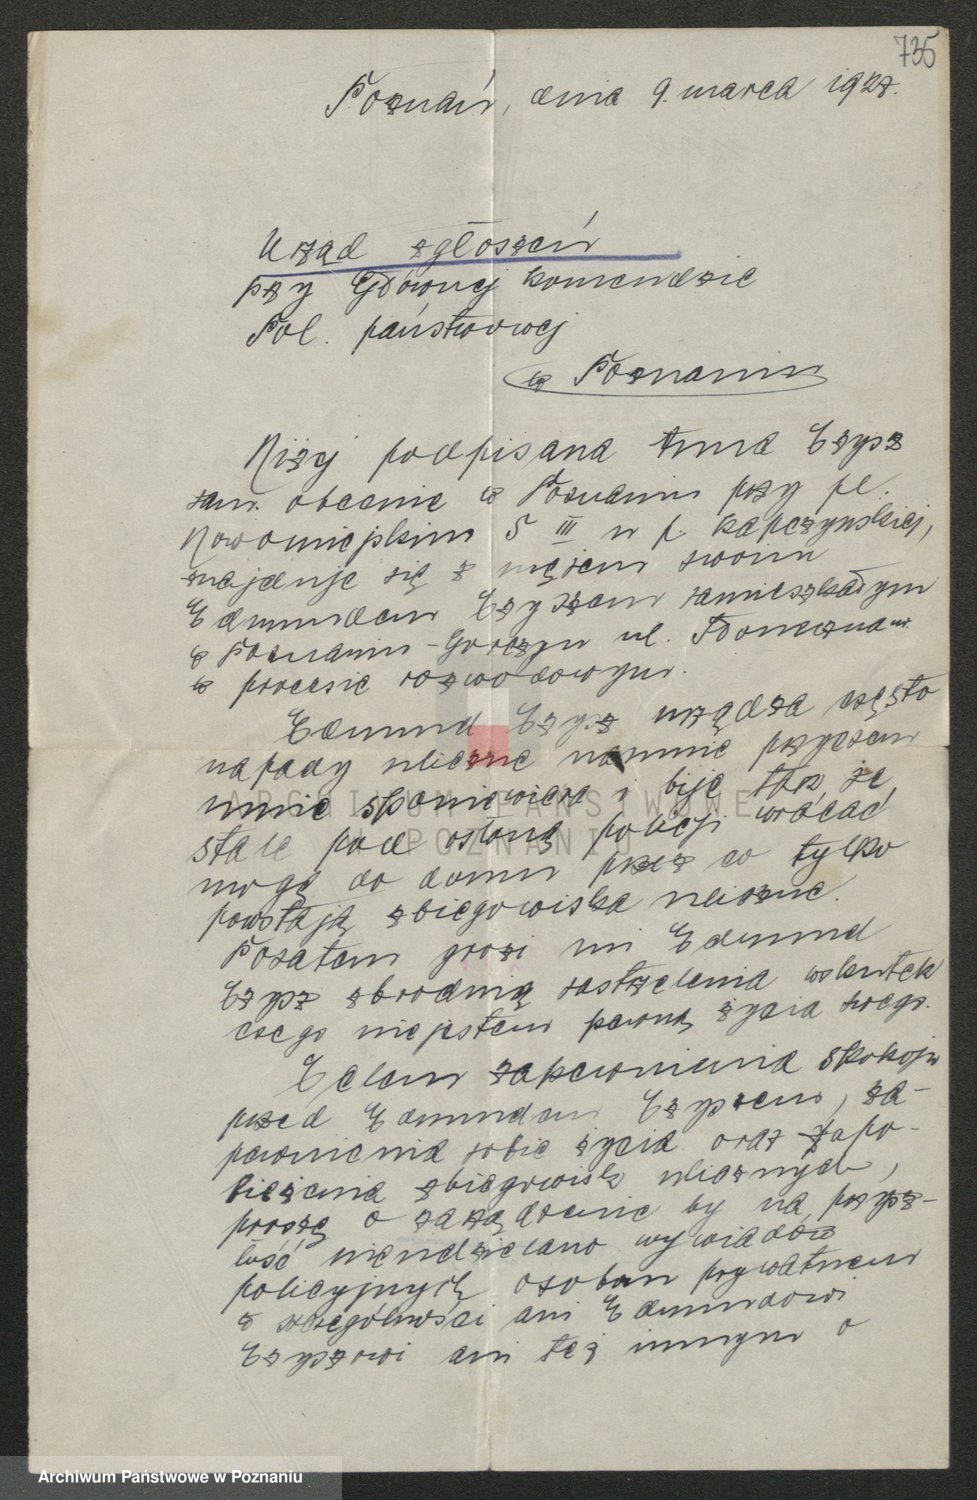 735
Poznań, dnia 9. marca 1927.
Urząd zgłoszeń
przy Głównej Komendzie
Pol. państwowej
w Poznaniu
Niżej podpisana Anna Czysz
zam. obecnie w Poznaniu przy pl.
Nowomiejskim 5 III u p. Kapczyńskiej,
znajduje się z mężem swoim
Edmundem Czyszem zamieszkałym
w Poznaniu - Górczyn ul.
w procesie rozwodowym.
Edmund Czysz urządza często
napady uliczne na mnie przyczem
mnie sponiewiera i bije tak że
stale pod osłoną policji wracać
mogę do domu przez co tylko
powstają zbiegowiska uliczne.
Pozatem grozi mi Edmund
Czysz zbrodnią zastrzelenia wskutek
czego nie jestem pewną życia swego.
Celem zapewnienia spokoju
przed Edmundem Czyszem, za-
pewnienia sobie życia oraz zapo-
bieżenia zbiegowisk ulicznych,
proszę o zarządzenie by na przysz-
łość nie udzielano wywiadów
policyjnych osobom prywatnym
w szczególności ani Edmundowi
Czyszowi ani też innym o
ARCHIWUM PAŃSTWOWE
W POZNANIU
Archiwum Państwowe w Poznaniu